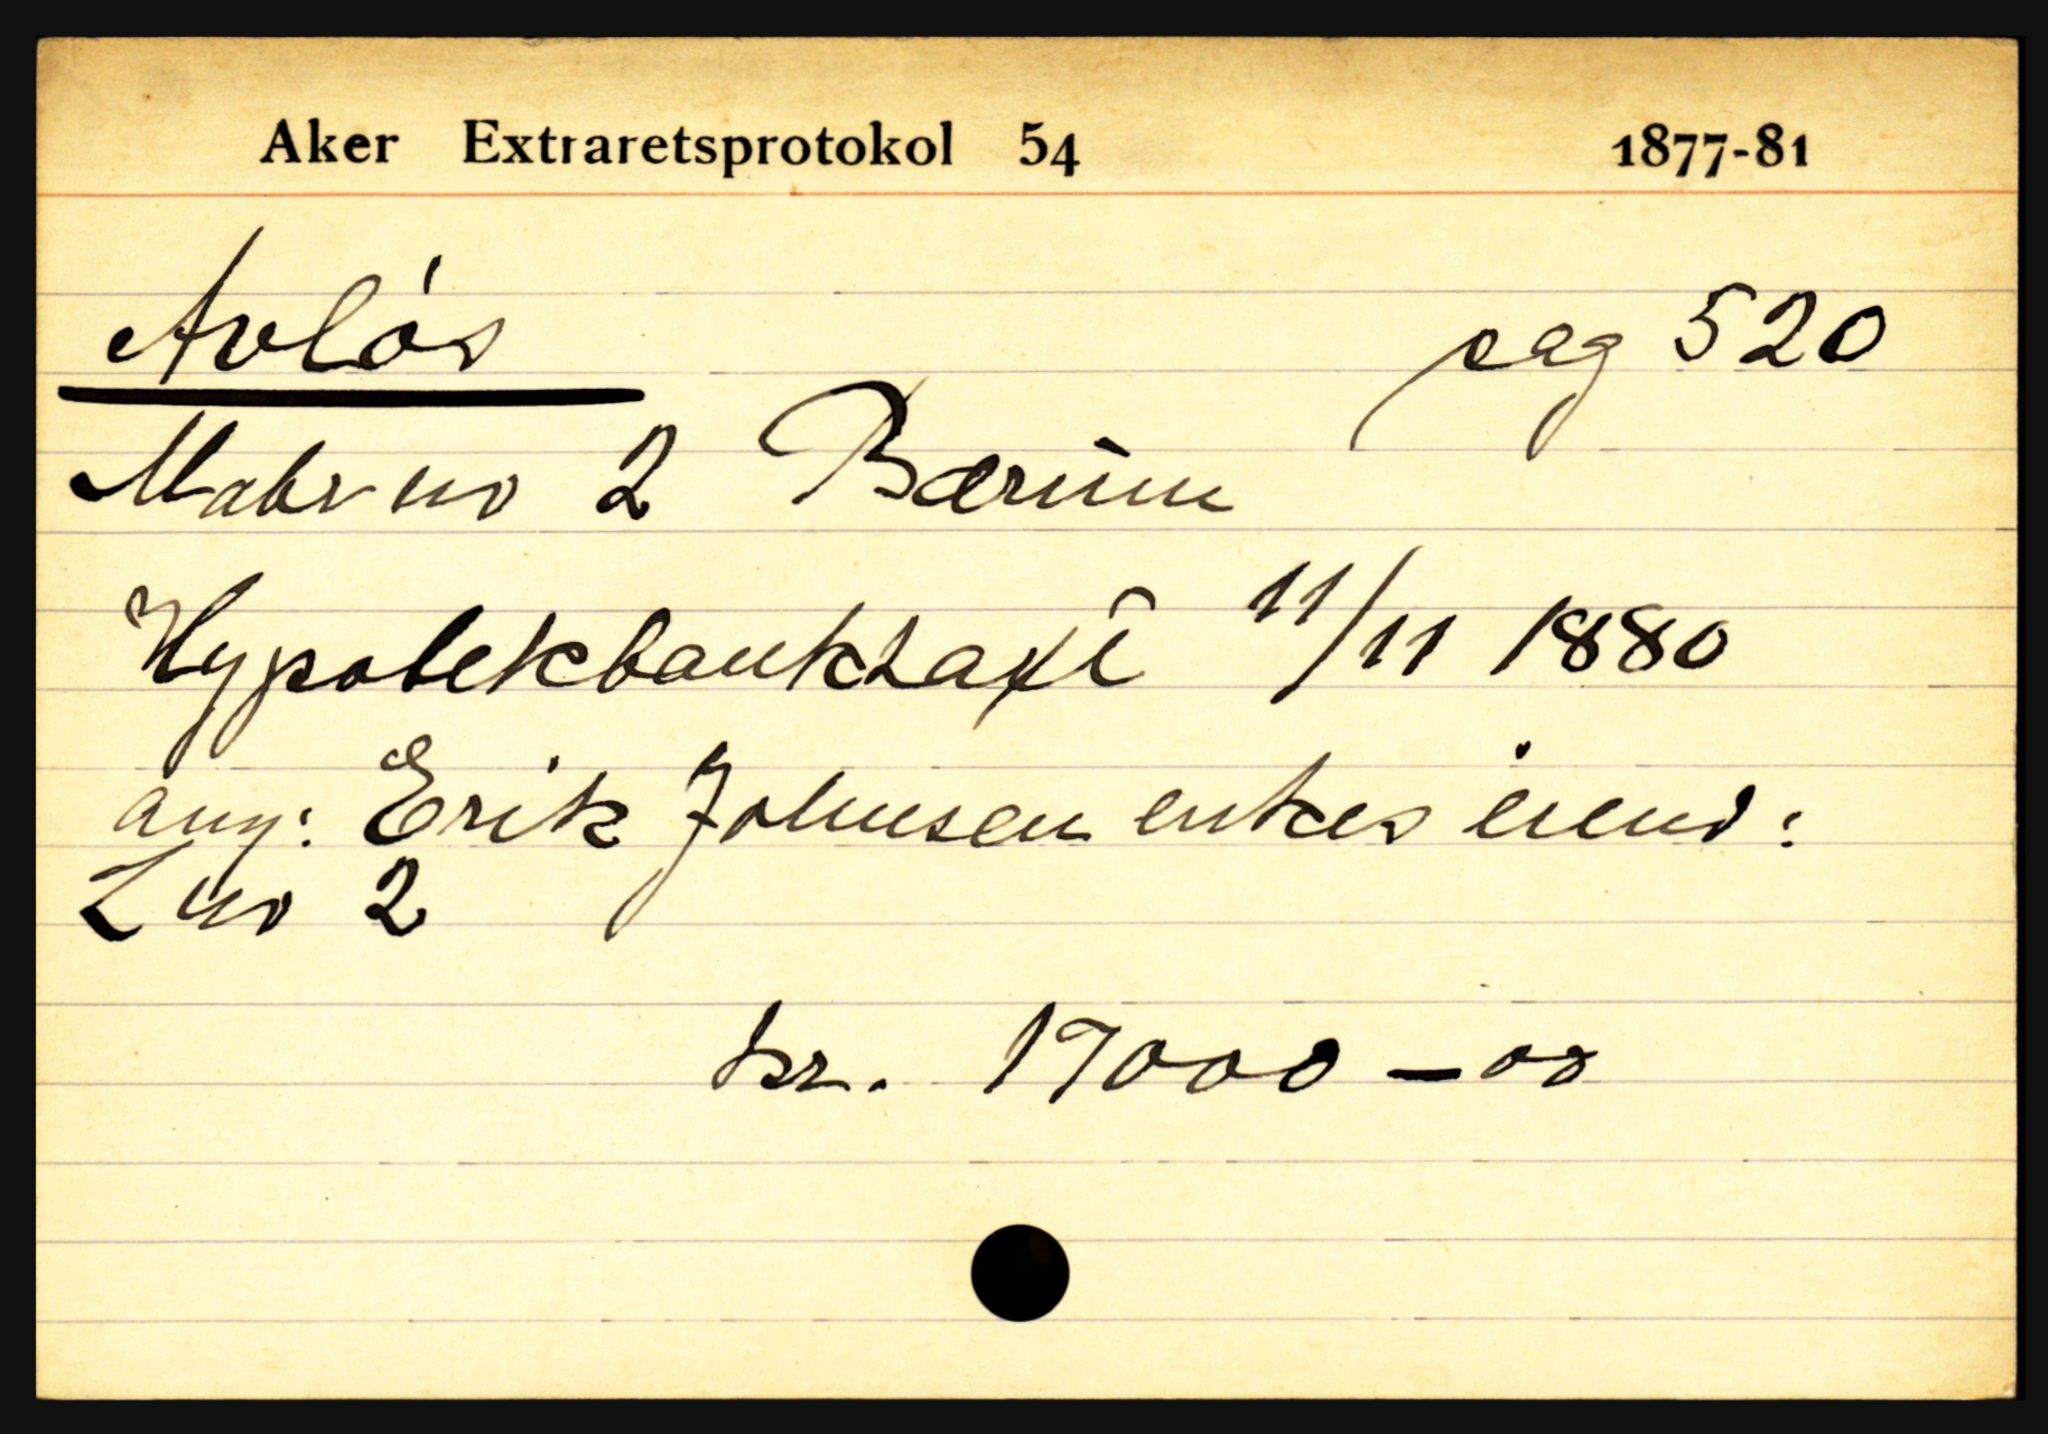 Aker Extraretsprotokol 54 1877-81
Avlós pag 520
Matr no 2 Bærum
Hypotekbanktaxt 11/11 1880
ang: Erik Johnsen enkes eiend:
L no 2
kr. 17000 – 00